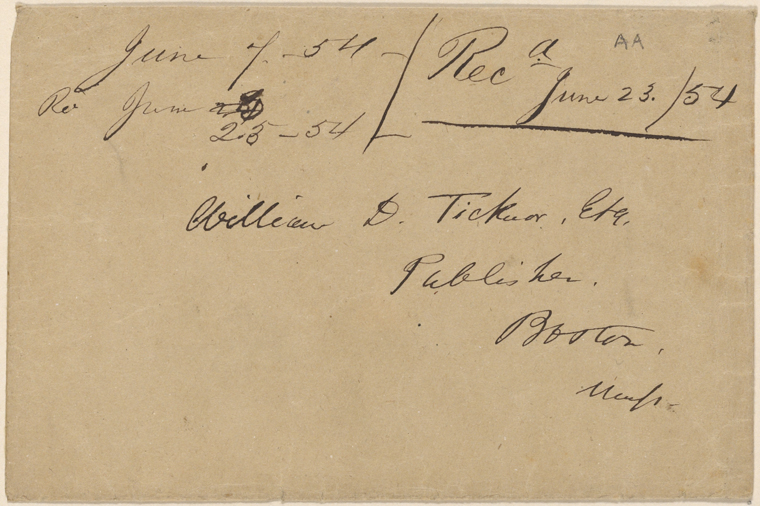 June 7 - 54 -
Rec'd June 23. / 54
AA
Re'd June
25 - 54
William D. Ticknor, Esq.
Publisher.
Boston,
Mass.